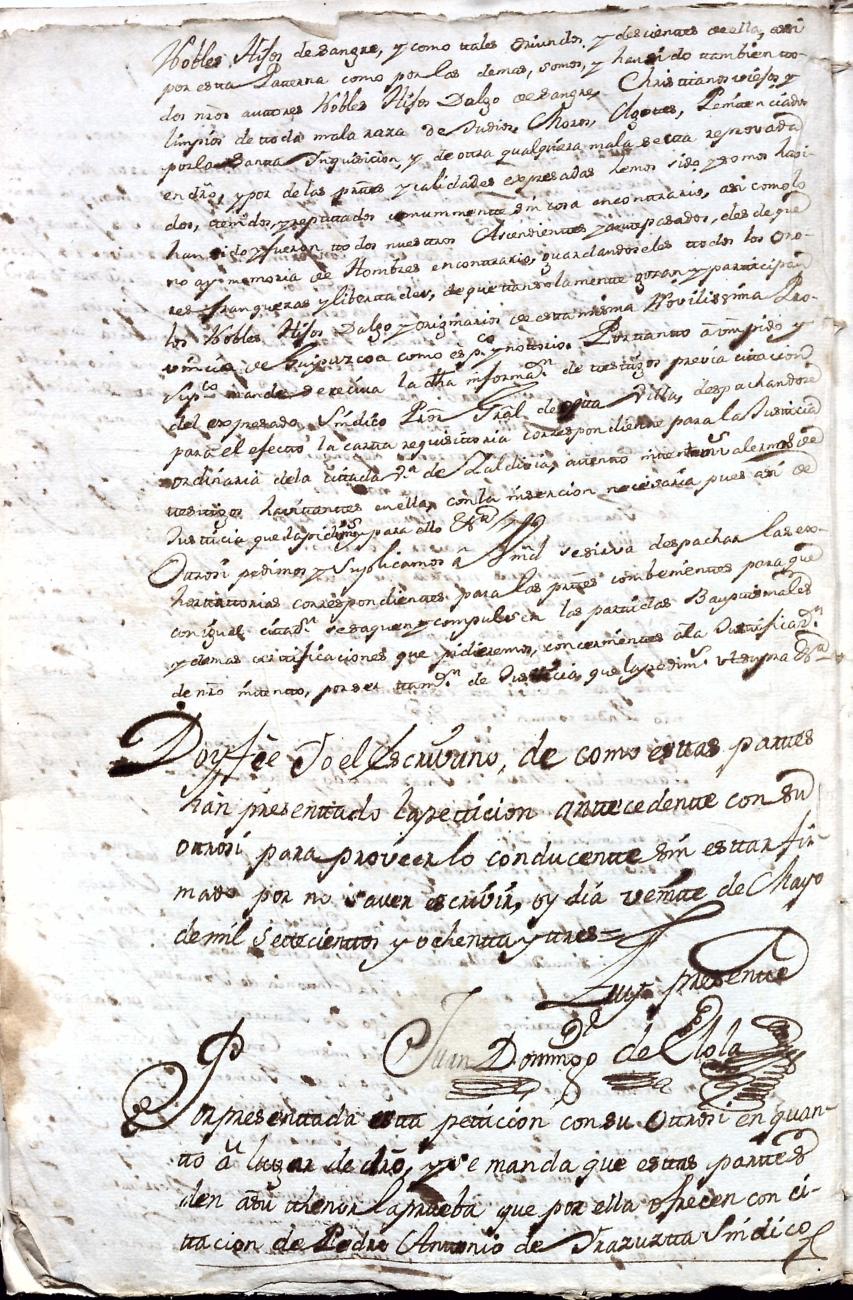 Nobles Hijos de Sangre, y como ttales oriundos y descientes de ella, assi
por esta Paterna como por las demas, somos, y han sido ttambien tto-
dos nrōs auttores Nobles Hijos Dalgo de Sangre, Christianos viejos, y
limpios de toda mala raza de Judios, Moros, Agotes, Penitenciados
por la Santa Inquisicion, y de otra qualquiera mala Secta reprovada
en drō, y por de las prttes y calidades expresadas hemos sido y somos havi-
dos, ttenidos, y reputtados comummentte sin cosa en contrario, asi como lo
han sido y fueron ttodos nuesttros Ascendientes y antepasados, desde que
no ay memoria de Hombres en contrario, guardandoseles ttodos los Ono-
res franquezas y liberttades, de que ttan solamente gozan y participan
los Nobles Hijos Dalgo y originarios de esta misma Novilissima Pro-
vincia de Guipuzcoa como es p.co y nottorio. Por ttantto á vm pido y
Sup.co mande se reciva la dha informaz.n de testigos previa cittacion
del expresado Sindico Pror Gral de estta Villa, despachandose
para el efecto la carta requisittoria correspondiente para la Justticia
ordinaria de la cittada v.a de Zaldivia, attento intentamos valernos de
testtigos havittantes en ella, con la insercion necesaria pues asi es de
Justticia que la pedimos para ello &.a
Otrosi pedimos y Suplicamos a Vmd se sirva despachar las ex-
hortattorias correspondientes para las prttes combenientes para que
con igual cittaz.n se saquen y compulsen las parttidas Bauptismales
y demas certtificaciones que pidieremos, concernientes á la Justtificaz.n
de nrō intento, por ser ttamb.n de Justticia, que la pedim.s ut supra &.a
Doy fee Yo el Escrivano, de como esttas parttes
han presenttado la petticion anttecedente con su
ottrosi para proveer lo conducentte sin esttar fir-
mado por no saver escrivir, oy dia veintte de Mayo
de mil settecienttos y ochentta y ttres =
Fuy presente
Juan Domingo de Elola
Por presenttada estta petticion con su Ottrosi en quan-
tto á lugar de drō, y se manda que esttas parttes
den á su thenor la prueba que por ella ofrecen con ci-
ttacion de Pedro Anttonio de Irazuzta Sindico